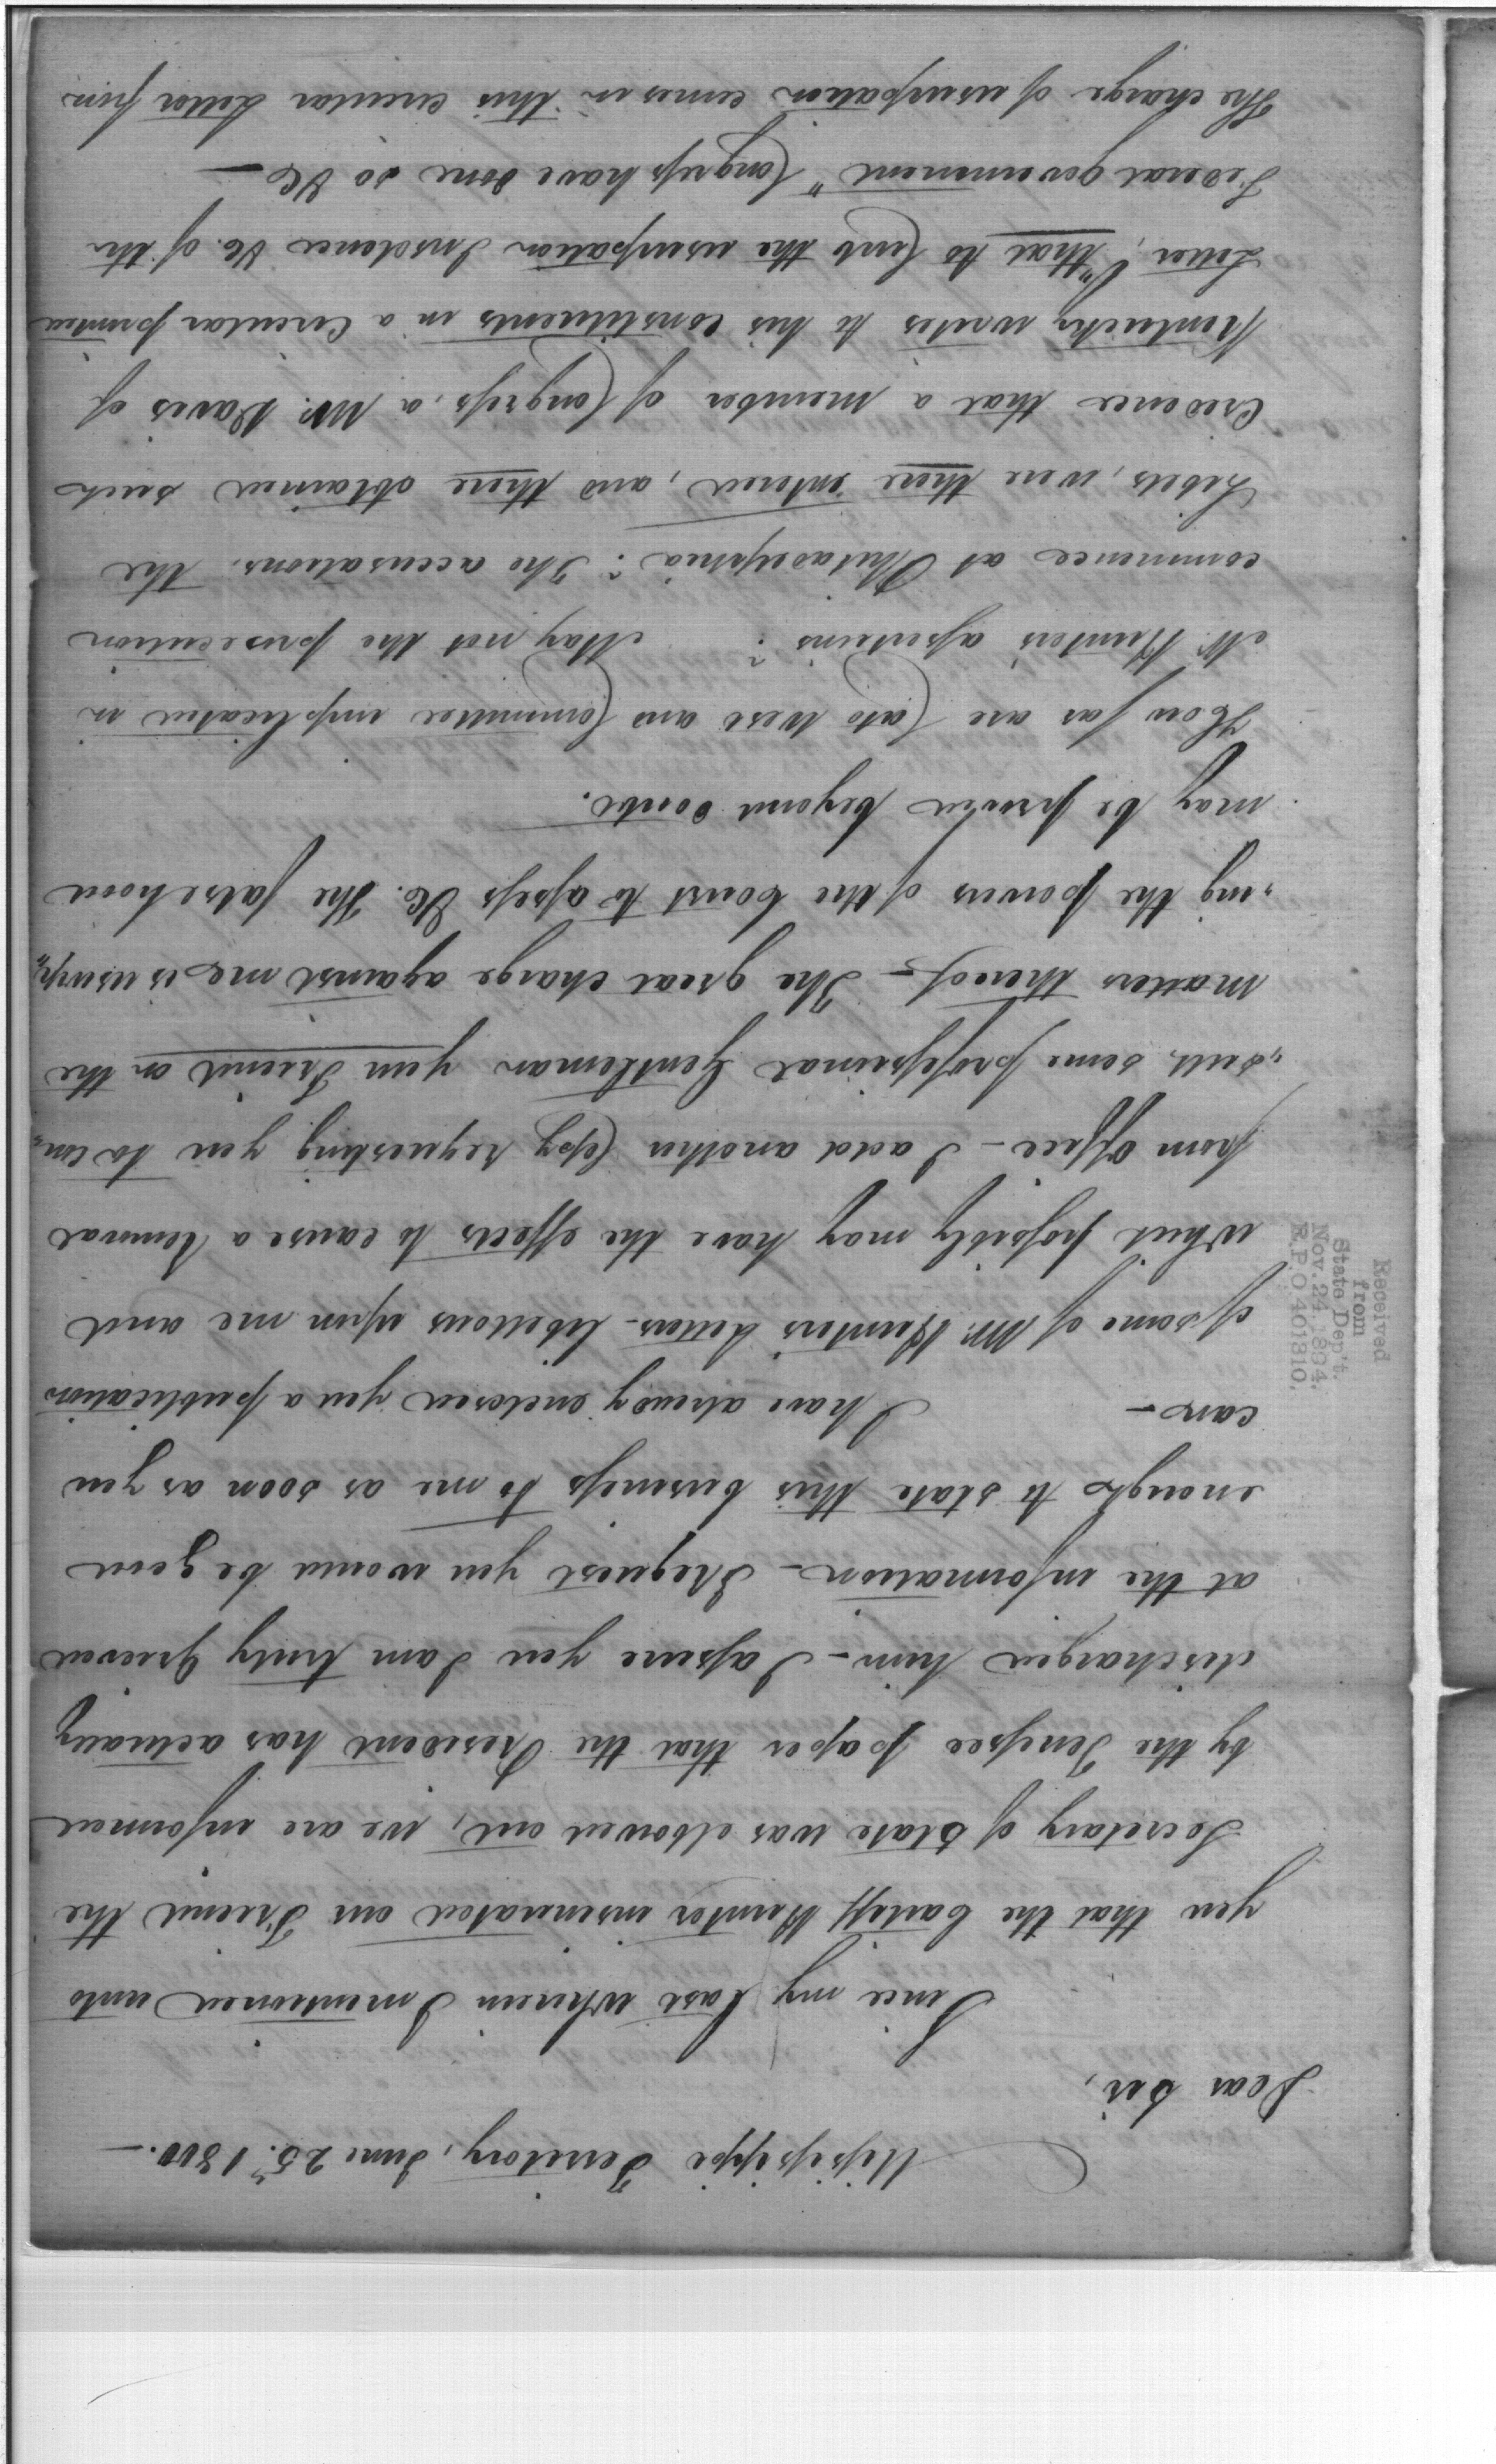 Missisippi Territory, June 25th. 1800.—
Dear Sir,
Since my last wherein I mentioned unto
you that the bailiff Hunter insinuated our Friend the
Secretary of State was elbowed out, we are informed
by the Tenessee paper that the President has actually
discharged him — I assure you I am truly grieved
at the information — I request you would be good
enough to state this business to me as soon as you
can —
I have already enclosed you a publication
of some of Mr. Hunters Letters — libellous upon me and
which possibly may have the effects to cause a removal
from Office — I add another Copy requesting you to con„
„sult, some professional Gentleman your Friend on the
matters thereof — The great charge against me is usurp„
„ing the powers of the Court to assess &c. The falsehood
may be proved beyond doubt.
How far are Cato West and Committee implicated in
Mr. Hunters assertions? May not the prosecution
commence at Philadelphia? The accusations, the
Libels, were there entered, and there obtained such
Credence that a member of Congress, a Mr. Davis of
Kentucky writes to his constituents in a Circular printed
Letter, "that to Curb the usurpation Insolence &c. of the
Federal government" Congress have done so &c —
The charge of usurpation comes in this circular Letter from
Received
from
State Dep't.
Nov. 24, 1894.
R.P.O 401310.